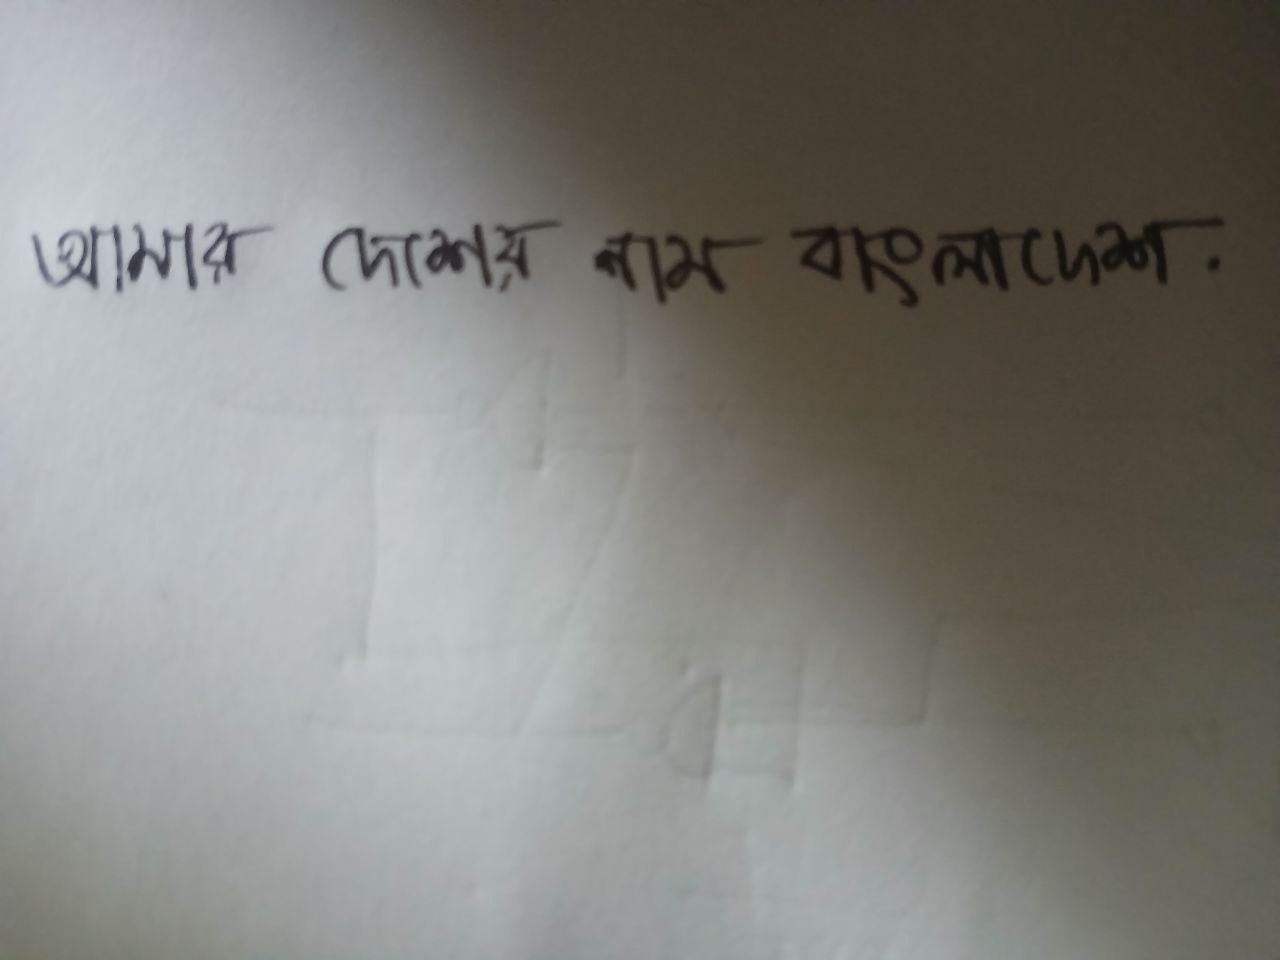 আমার দেশের নাম বাংলাদেশ.